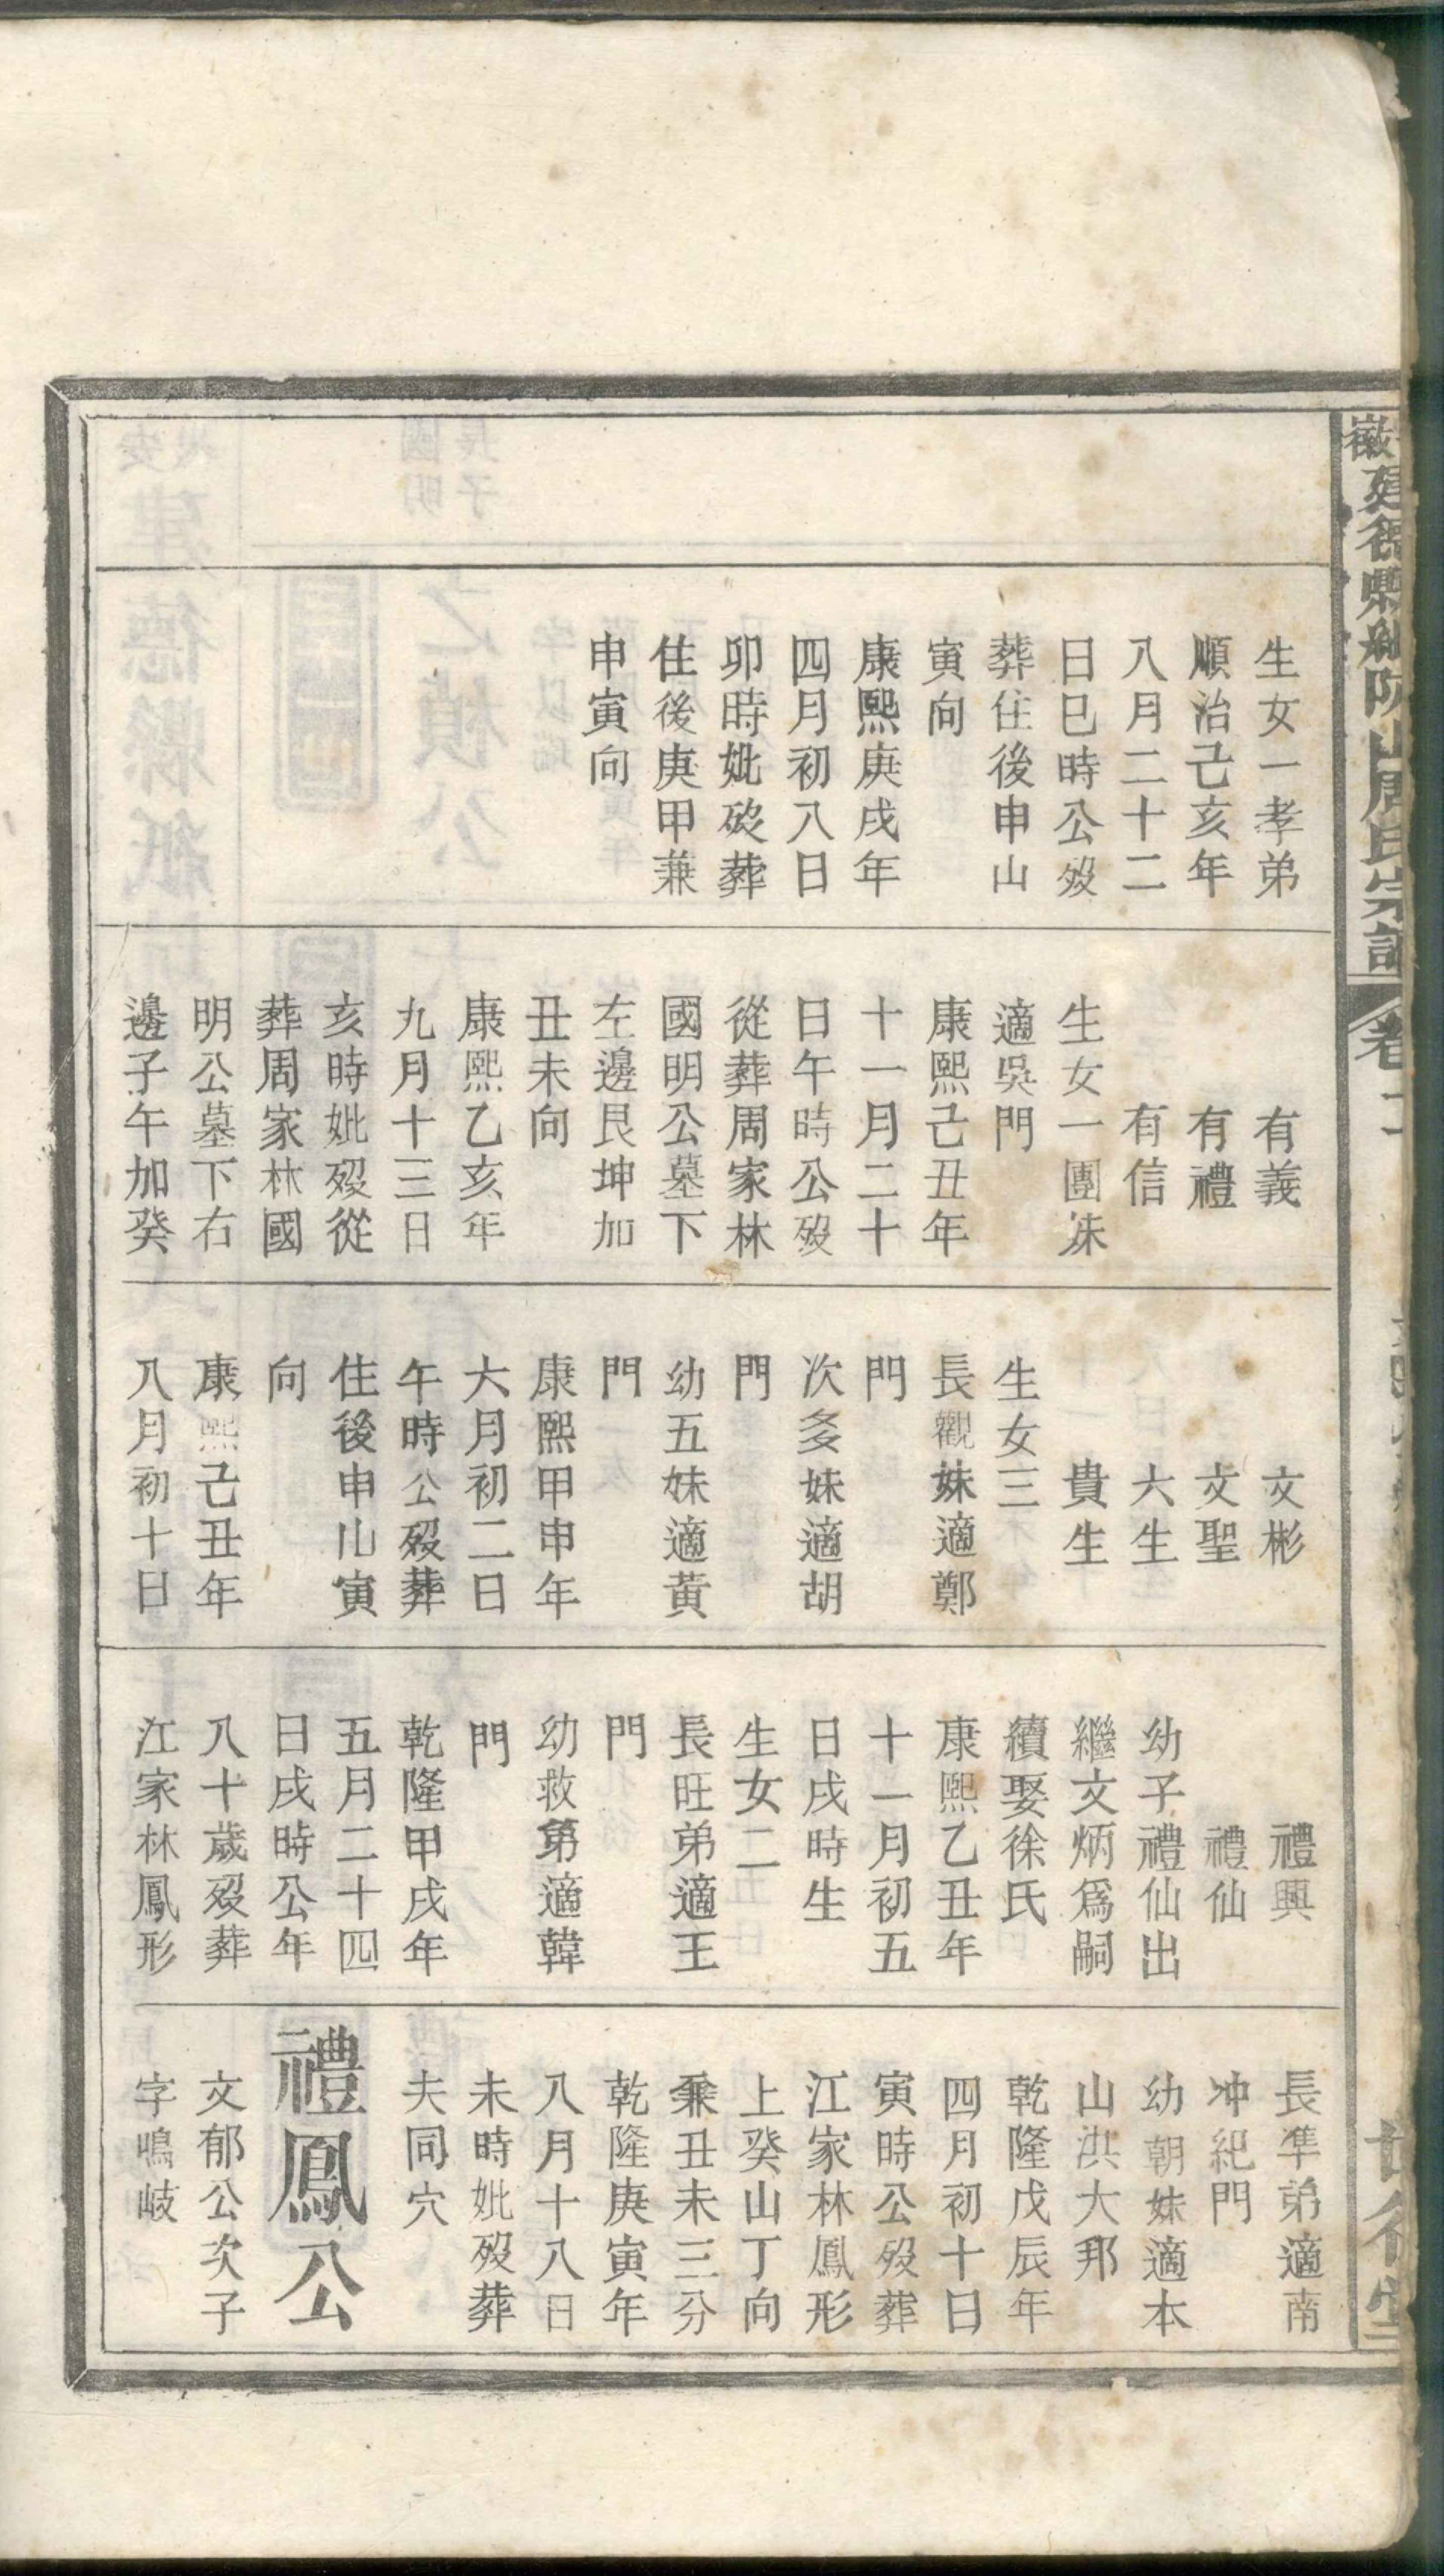 生女一孝弟
順治己亥年
八月二十二
日巳時公歿
葬住後申山
寅向
康熙庚戌年
四月初八日
卯時妣歿葬
住後庚甲兼
申寅向
有義
有禮
有信
生女一團妹
適吳門
康熙己丑年
十一月二十
日午時公歿
從葬周家林
國明公墓下
左邊艮坤加
丑未向
康熙乙亥年
九月十三日
亥時妣歿從
葬周家林國
明公墓下右
邊子午加癸
文彬
文聖
六生
貴生
生女三
長觀妹適鄭
門
次多妹適胡
門
幼五妹適黃
門
康熙甲申年
六月初二日
午時公歿葬
住後申山寅
向
康熙己丑年
八月初十日
禮興
禮仙
幼子禮仙出
繼文炳爲嗣
續娶徐氏
康熙乙丑年
十一月初五
日戌時生
生女二
長旺弟適王
門
幼救第適韓
門
乾隆甲戌年
五月二十四
日戌時公年
八十歲歿葬
江家林鳳形
長準弟適南
冲紀門
幼朝妹適本
山洪大邦
乾隆戊辰年
四月初十日
寅時公歿葬
江家林鳳形
上癸山丁向
兼丑未三分
乾隆庚寅年
八月十八日
未時妣歿葬
夫同穴
禮鳳公
文郁公次子
字鳴岐